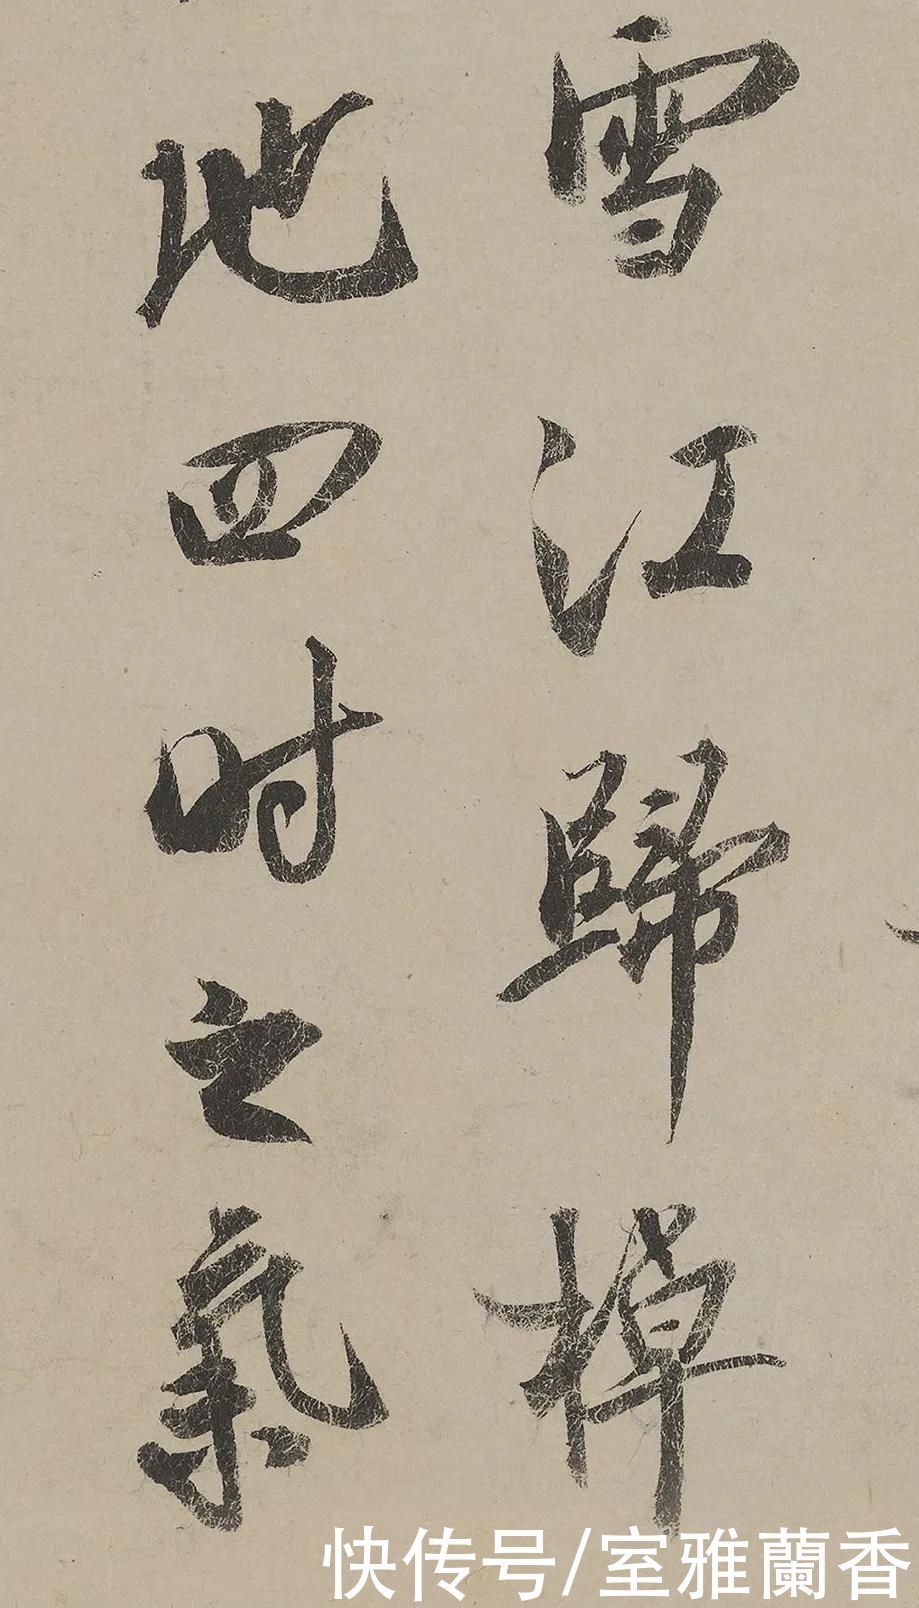 雪江歸棹
地四时之氣
快传号/室雅蘭香